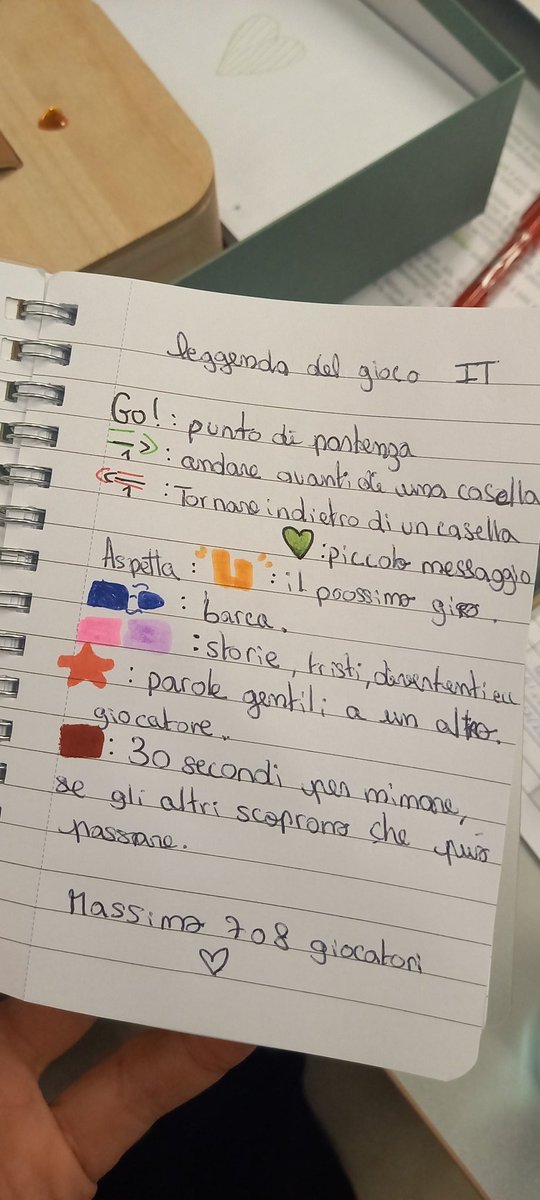 leggenda del gioco IT
Go! : punto di partenza
1 : andare avanti di una casella
1 : Tornare indietro di un casella
: piccolo messaggio
Aspetta : : il prossimo giro.
: barca.
: storie, tristi, divententi
: parole gentili a un altro.
giocatore.
: 30 secondi per mimare,
se gli altri scoprono che può
passare.
Massimo 7 o 8 giocatori